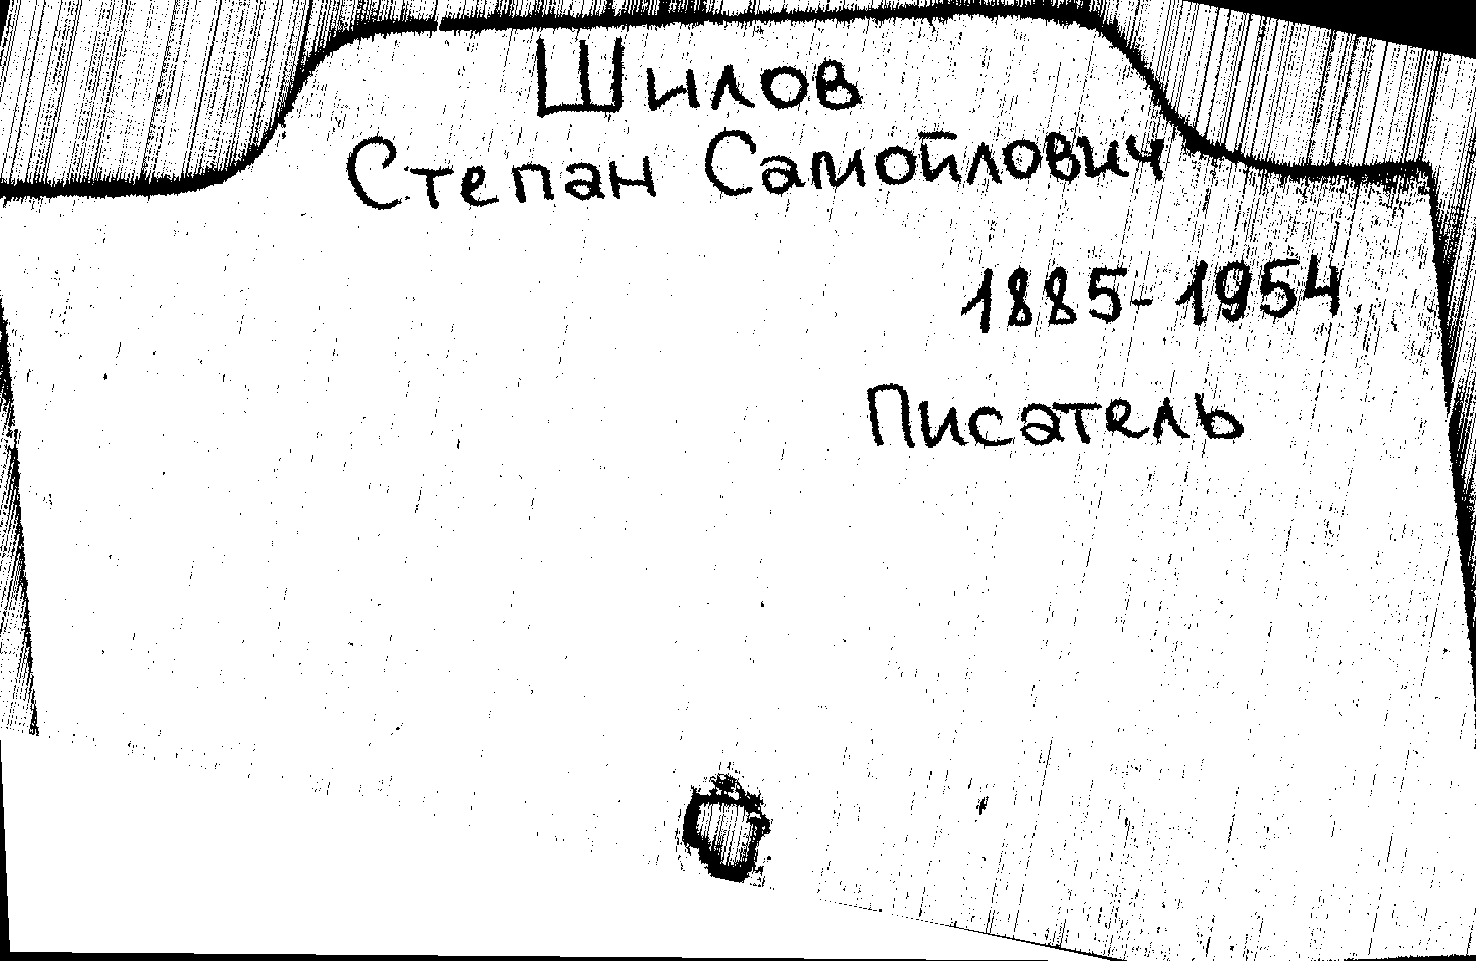 Шилов
Степан Самойлович
1885-1954
Писатель